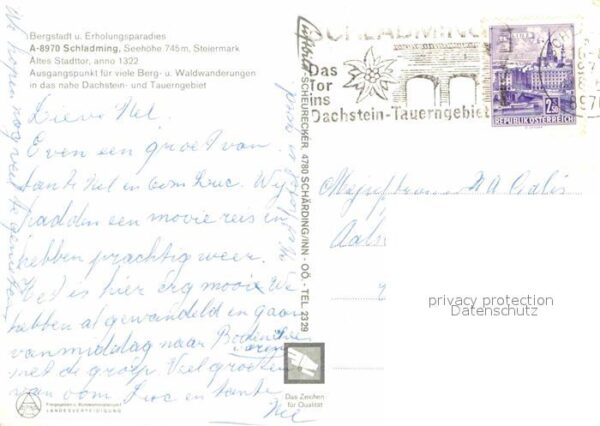 Bergstadt u. Erholungsparadies
A-8970 Schladming, Seehöhe 745m, Steiermark
Altes Stadttor, anno 1322
Ausgangspunkt für viele Berg- u. Waldwanderungen
in das nahe Dachstein- und Tauerngebiet
Lieve Nel.
Even een groet van
tante Nel en oom Luc. Wij
hadden een mooie reis en
hebben prachtig weer.
Het is hier erg mooi. We
hebben al gewandeld en gaan
vanmiddag naar
met de groep. Veel groeten
van oom Luc en tante
Nel
We hopen nog veel te genieten
Luftbild SCHEURECKER, 4780 SCHÄRDING/INN - OÖ. - TEL. 2329
SCHLADMING
Das
Tor
ins
Dachstein-Tauerngebiet
8970
2.50
REPUBLIK ÖSTERREICH
Mejuffrouw
privacy protection
Datenschutz
Das Zeichen
für Qualität
LANDESVERTEIDIGUNG